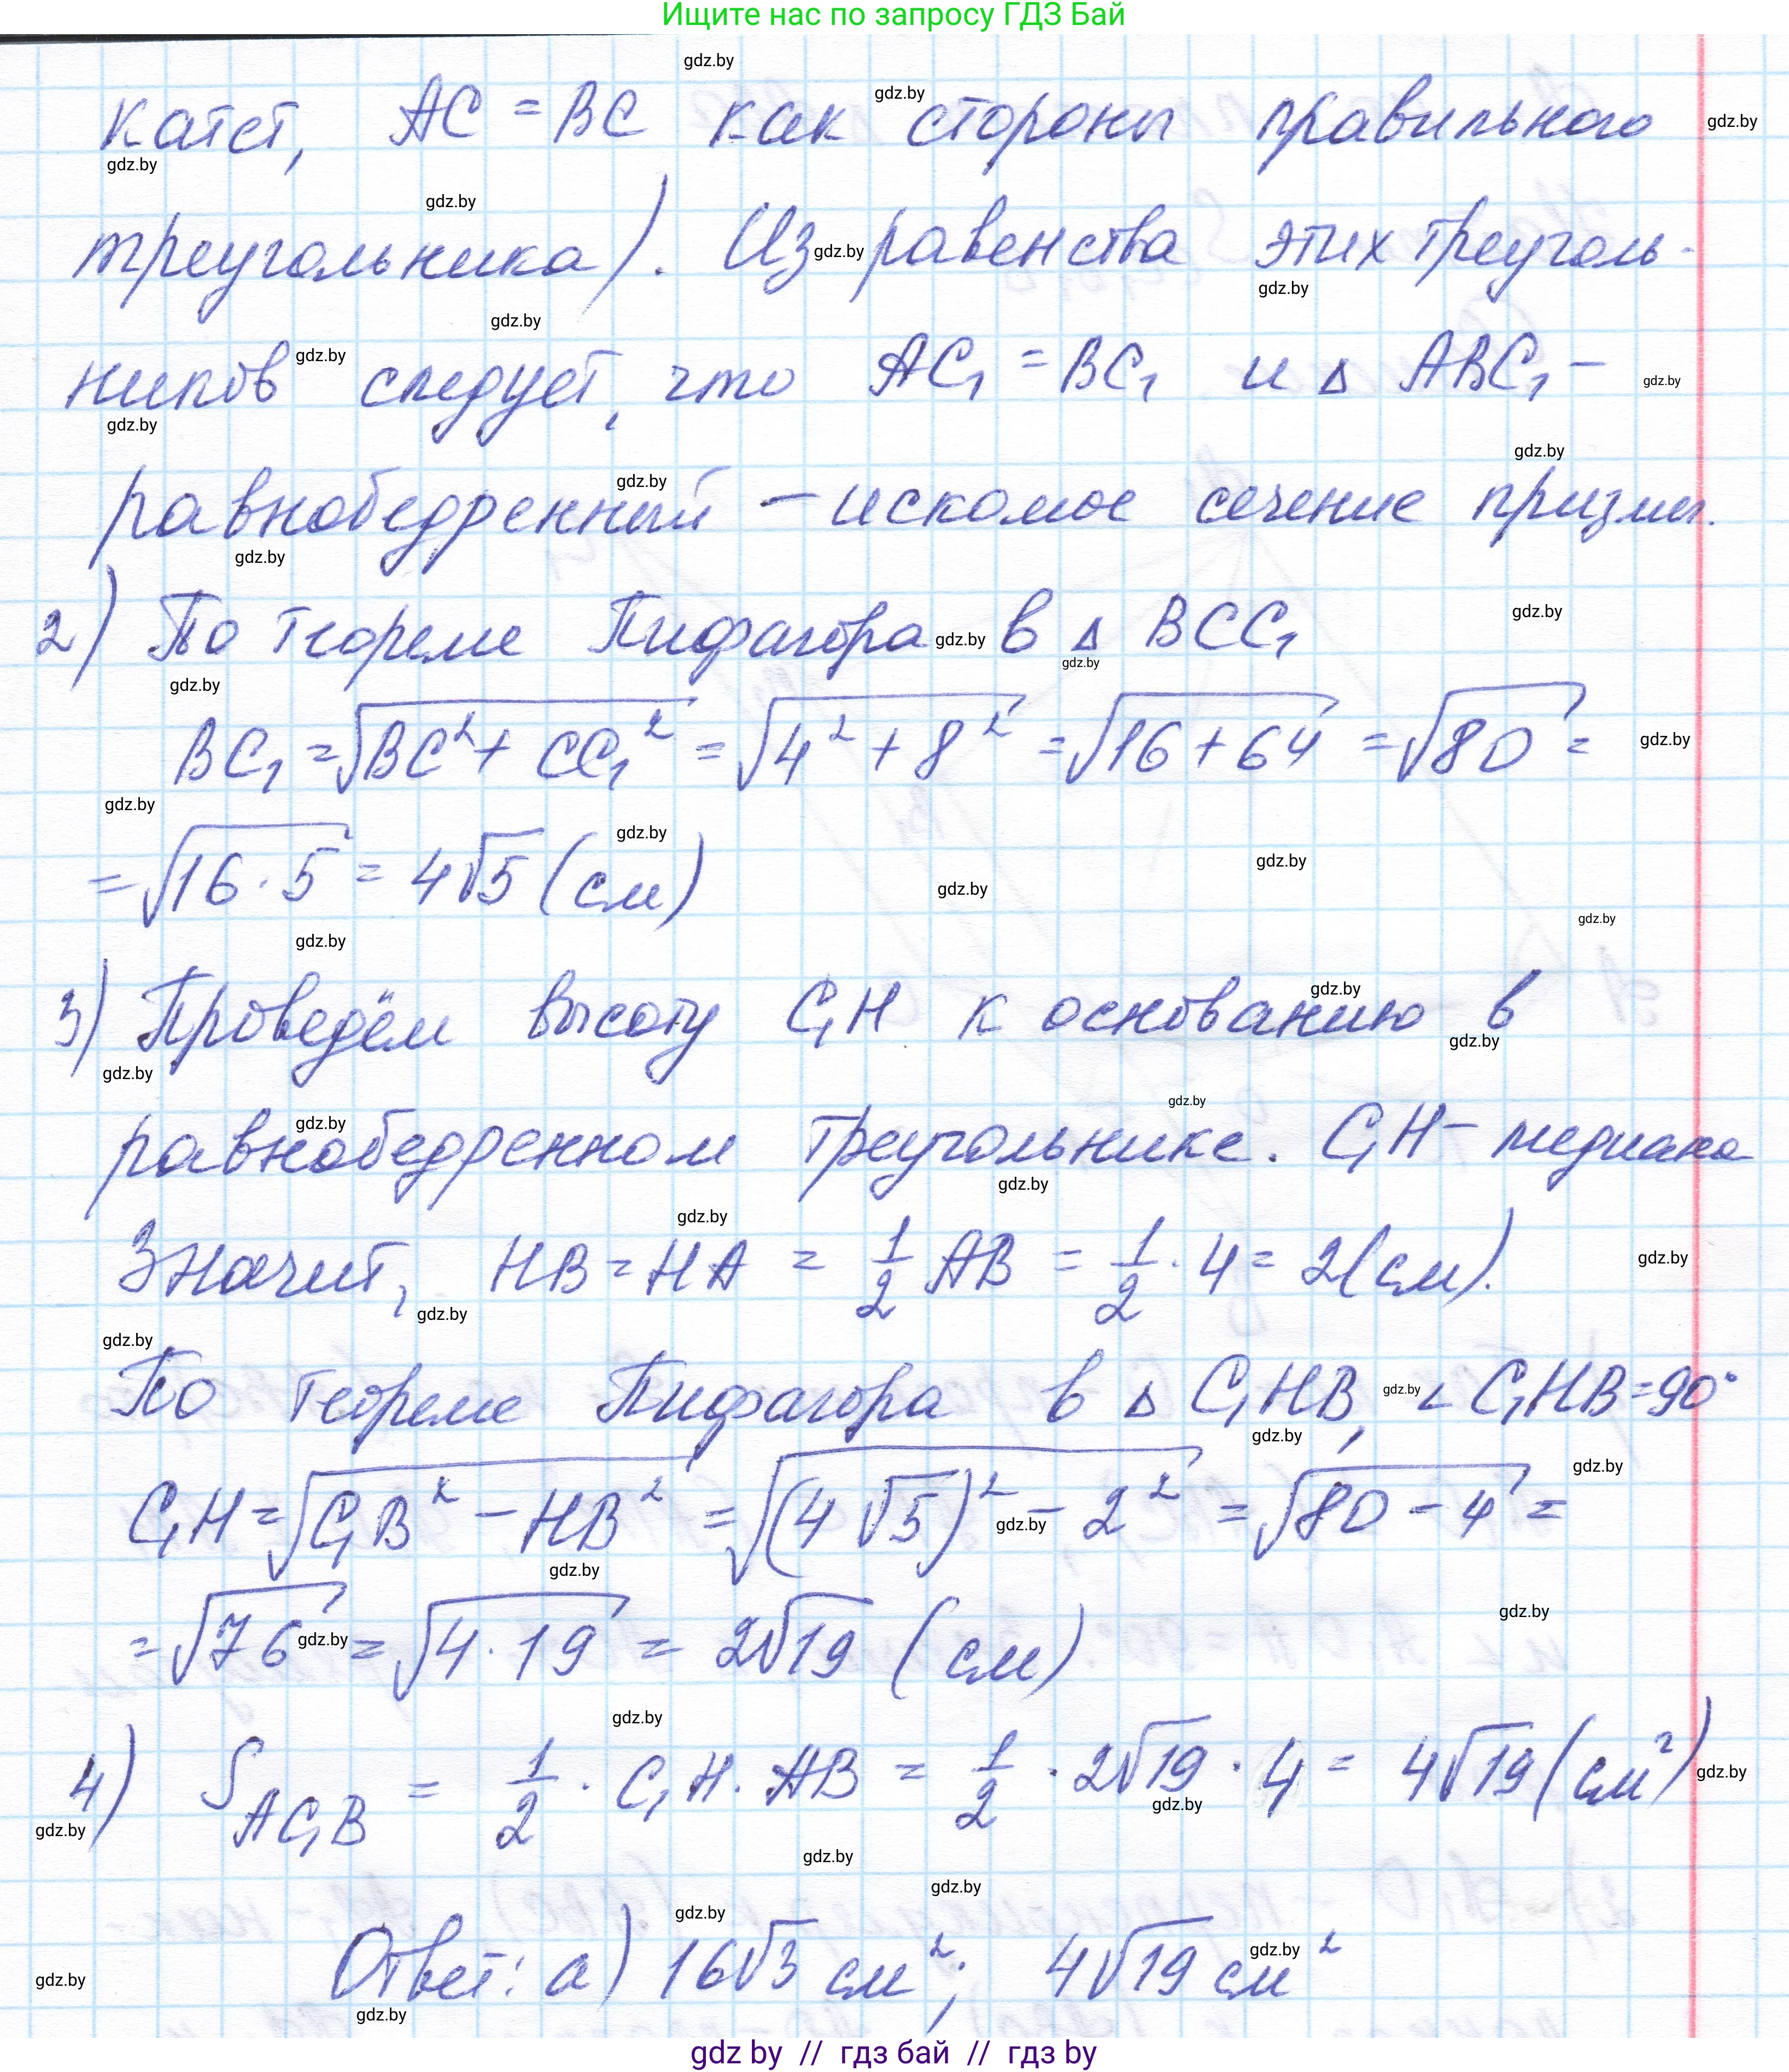 Ищите нас по запросу ГДЗ Бай
катет, AC = BC как стороны правильного
треугольника). Из равенства этих треуголь-
ников следует, что AC₁ = BC₁ и Δ ABC₁ –
равнобедренный – искомое сечение призмы.
2) По теореме Пифагора в Δ BCC₁
BC₁ = √(BC² + CC₁²) = √(4² + 8²) = √(16 + 64) = √80 =
= √(16 · 5) = 4√5 (см)
3) Проведём высоту C₁H к основанию в
равнобедренном треугольнике. C₁H – медиана
Значит, HB = HA = 1/2 AB = 1/2 · 4 = 2 (см).
По теореме Пифагора в Δ C₁HB, ∠ C₁HB = 90°
C₁H = √(C₁B² – HB²) = √((4√5)² – 2²) = √(80 – 4) =
= √76 = √(4 · 19) = 2√19 (см)
4) S AC₁B = 1/2 · C₁H · AB = 1/2 · 2√19 · 4 = 4√19 (см²)
Ответ: а) 16√3 см²; 4√19 см²
gdz by // гдз бай // гдз by